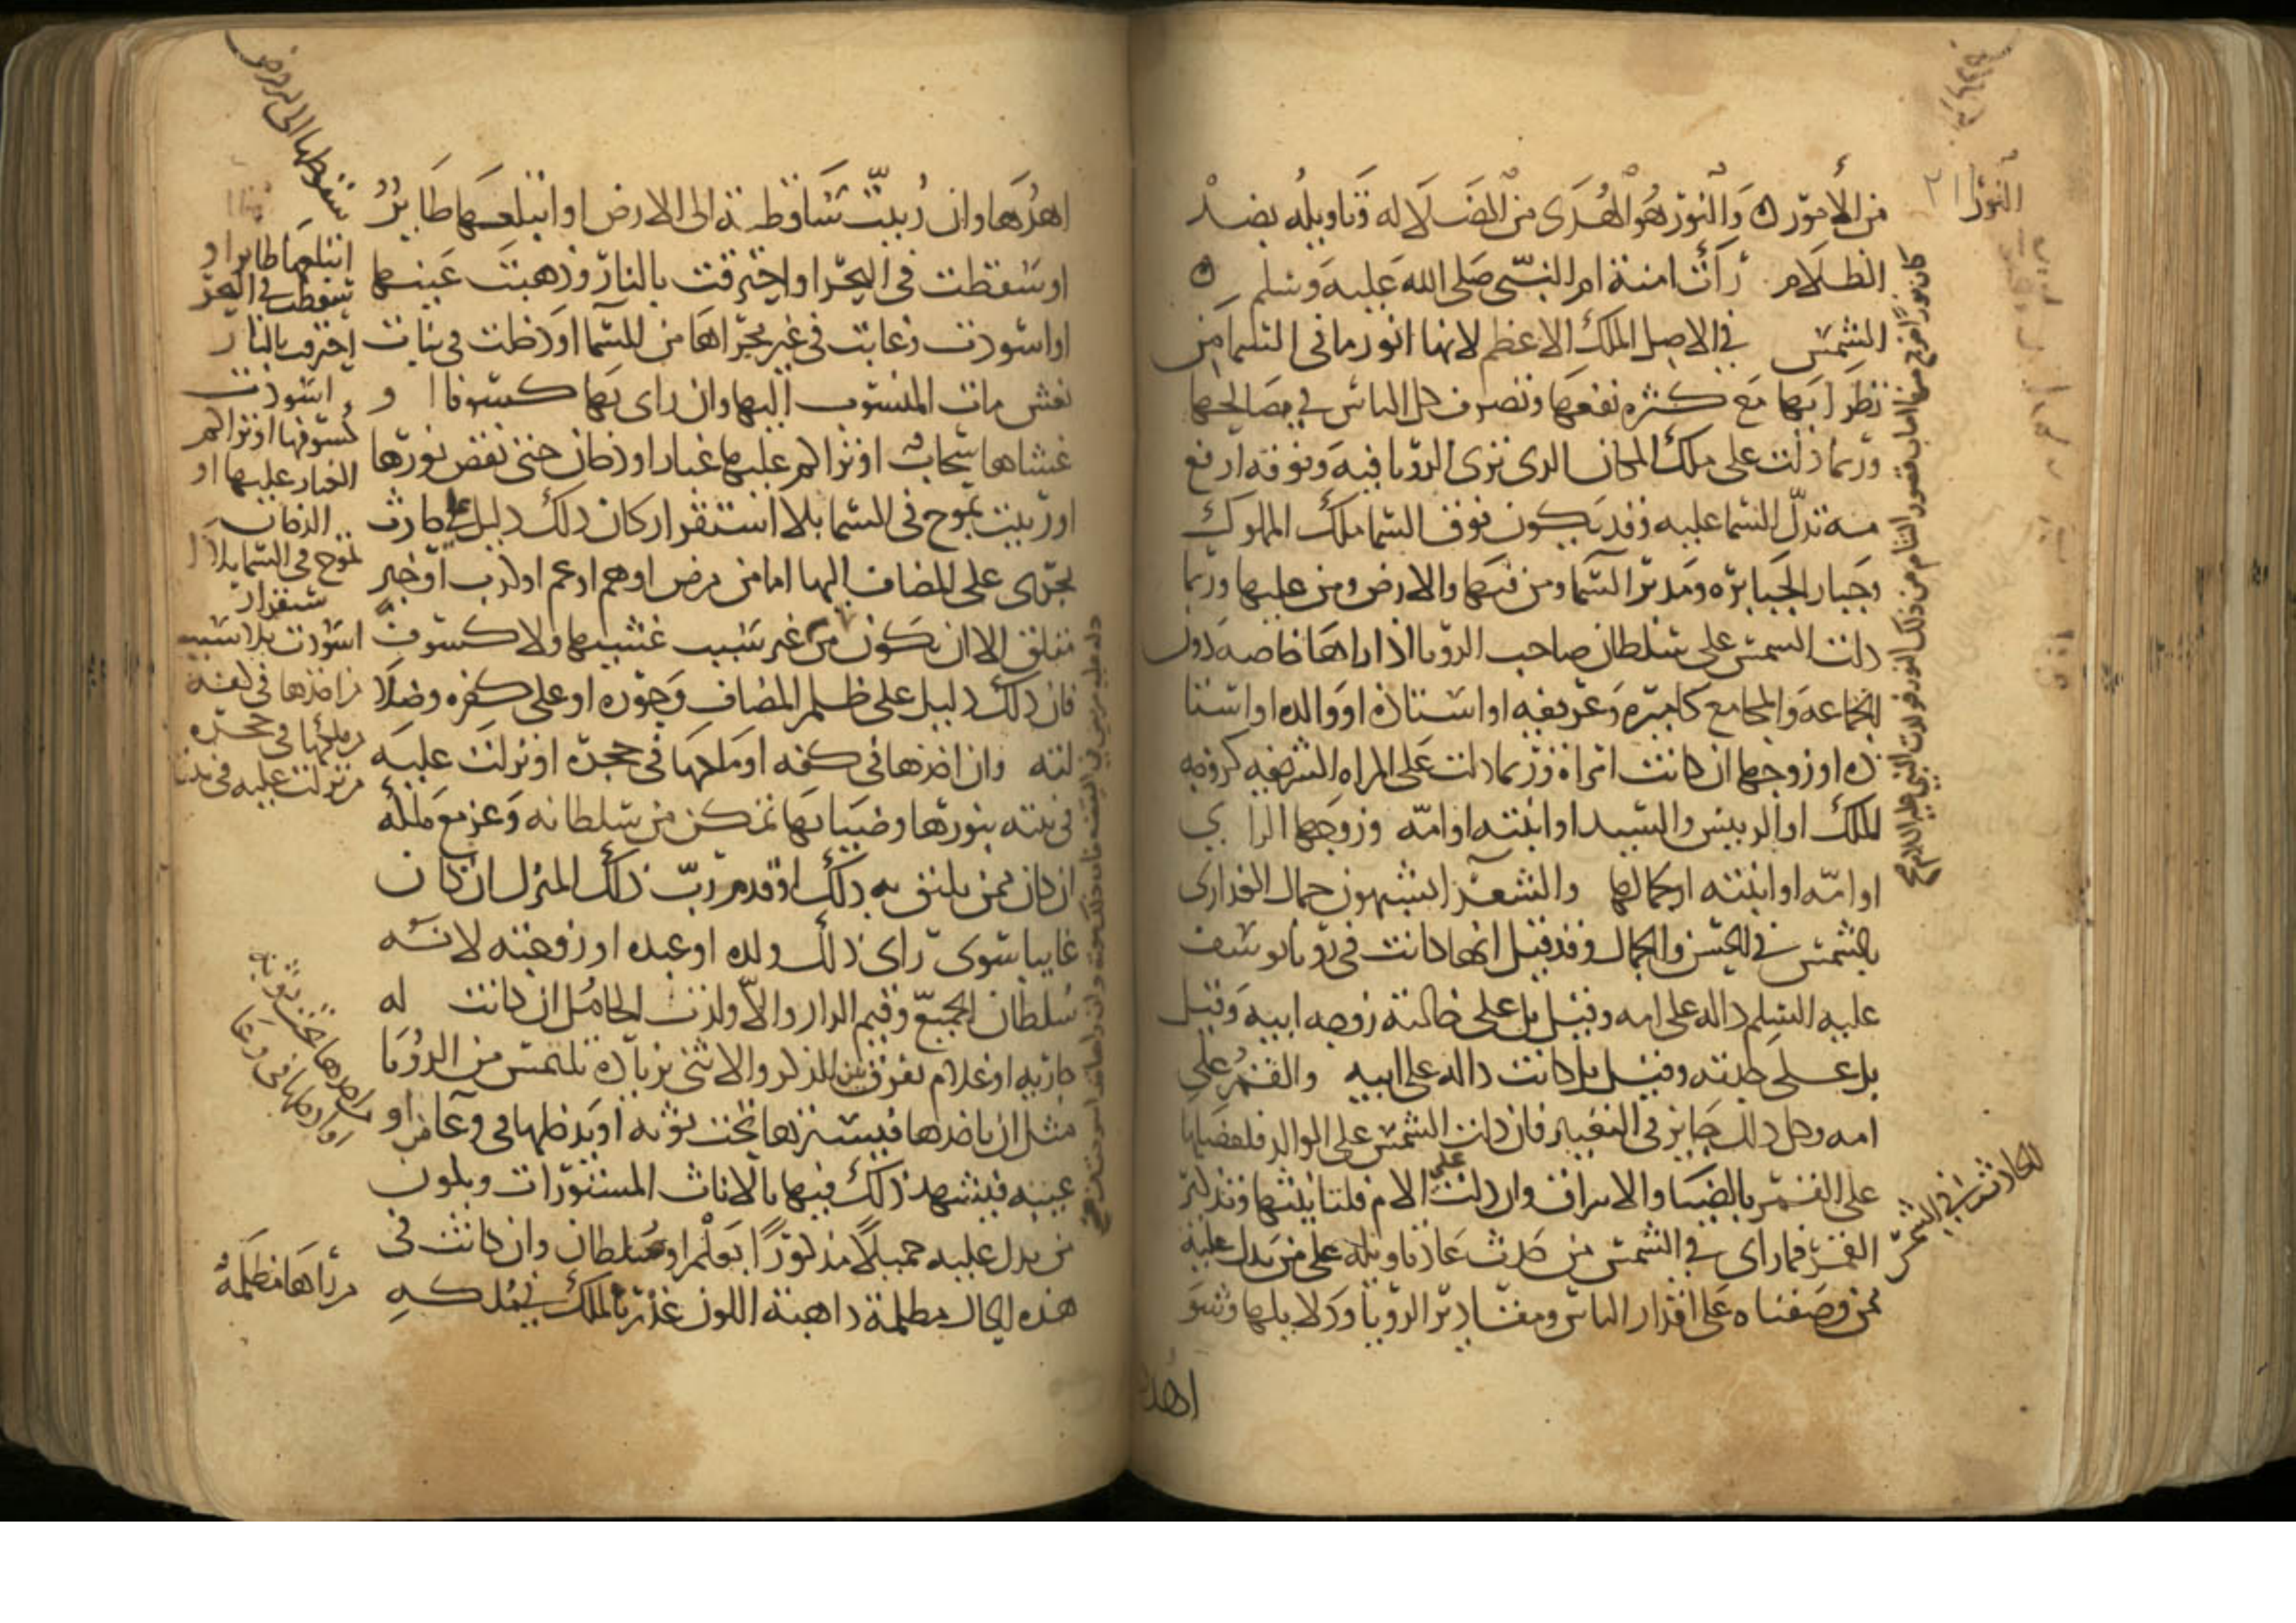 النور
من الأمور ن والنور هو الهدى من الضلاله وتاويله بضد
الظلام رأت امنة ام النبي صلى الله عليه وسلم ن
الشمس في الاصل الملك الاعظم لانها انور ما في السما من
نظرايها مع كثره نفعها وتصرف كل الناس في مصالحها
وربما دلت على ملك المكان الدى ترى الرويا فيه وفوقه ارفع
منه تدل السما عليه وقد يكون فوق السما ملك الملوك
وجبار الجبابره ومدبر السما ومن فيها والارض ومن عليها وربما
دلت الشمس على سلطان صاحب الرويا اذا راها خاصه دون
الجماعه والمجامع كاميره وعريفه او استاذه او والده او استا
ذه او زوجها ان كانت امراة وربما دلت على المراه الشريفه كزوجه
الملك او الرييس والسيد او ابنته او امه وزوجها الراي
او امه او ابنته او جمالها والشعرا يشبهون جمال العذارى
بالشمس في الحسن والجمال وقد قيل انها كانت في رويا يوسف
عليه السلم داله على امه وقيل بل على خالته زوجه ابيه وقيل
بل على جدته وقيل بل كانت داله على ابيه والقمر على
امه وكل ذلك جايز في التعبير فان دلت الشمس على الوالد فلفضلها
على القمر بالضيا والاشراق وان دلت على الام فلتانيثها وتذكير
القمر فما راى في الشمس من حدث عاد تاويله على من يدل عليه
ممن وصفناه على اقدار الناس ومقادير الرويا ودلايلها وشو
اهدها
كان نورًا خرج منها اضات قصور الشام من ذلك النور فولدت النبي عليه السلام صح
الحادثه في الشمس
اهدها وان رييت ساقطة الى الارض او ابتلعها طاير
او سقطت في البحر او احترقت بالنار وذهبت عينها
او اسودت وغابت في غير مجراها من السما او دخلت في بنات
نعش مات المنسوب اليها وان راى بها كسوفا او
غشاها سحاب او تراكم عليها غبار او دخان حتى نقص نورها
او رييت تموج في السما بلا استقرار كان ذلك دليل على حادث
يجرى على المضاف اليها اما من مرض او هم او غم او كرب او خبر
مقلق الا ان يكون من غير سبب غشيها ولا كسوف
فان ذلك دليل على ظلم المضاف وجوره او على كفره وضلا
لته وان اخذها في كفه او ملكها في حجره او نزلت عليه
في بيته بنورها وضيايها تمكن من سلطانه وعز مع ملكه
ان كان ممن يليق به ذلك او قدم رب ذلك المنزل ان كان
غايبا سوى راى ذلك ولده او عبده او زوجته لانه
سلطان الجميع وقيم الدار والا ولدت الحامل ان كانت له
جاريه او غلام تفرق بين الذكر والانثى بزيادة تلتمس من الرويا
مثل ان ياخذها فيسترها تحت ثوبه او يدخلها في وعا من او
عيبه فيشهد ذلك فيها بالاناث المستورات ويكون
من يدل عليه جميلًا مذكورًا بعلم او سلطان وان كانت في
هذه الحال مظلمة ذاهبة اللون غدر بالملك في ملكه
سقوطها الى الارض
ابتلعها طاير او
سقطت في البحر
احترقت بالنار
اسودت
كسوفها او تراكم
الغبار عليها او
الدخان
تموج في السما بلا ا
ستقرار
اسودت بلا سبب
من اخذها في كفه
او ملكها في حجره
من نزلت عليه في بيته
من اخذها تحت ثوبه
او ادخلها في وعا
من راها مظلمة